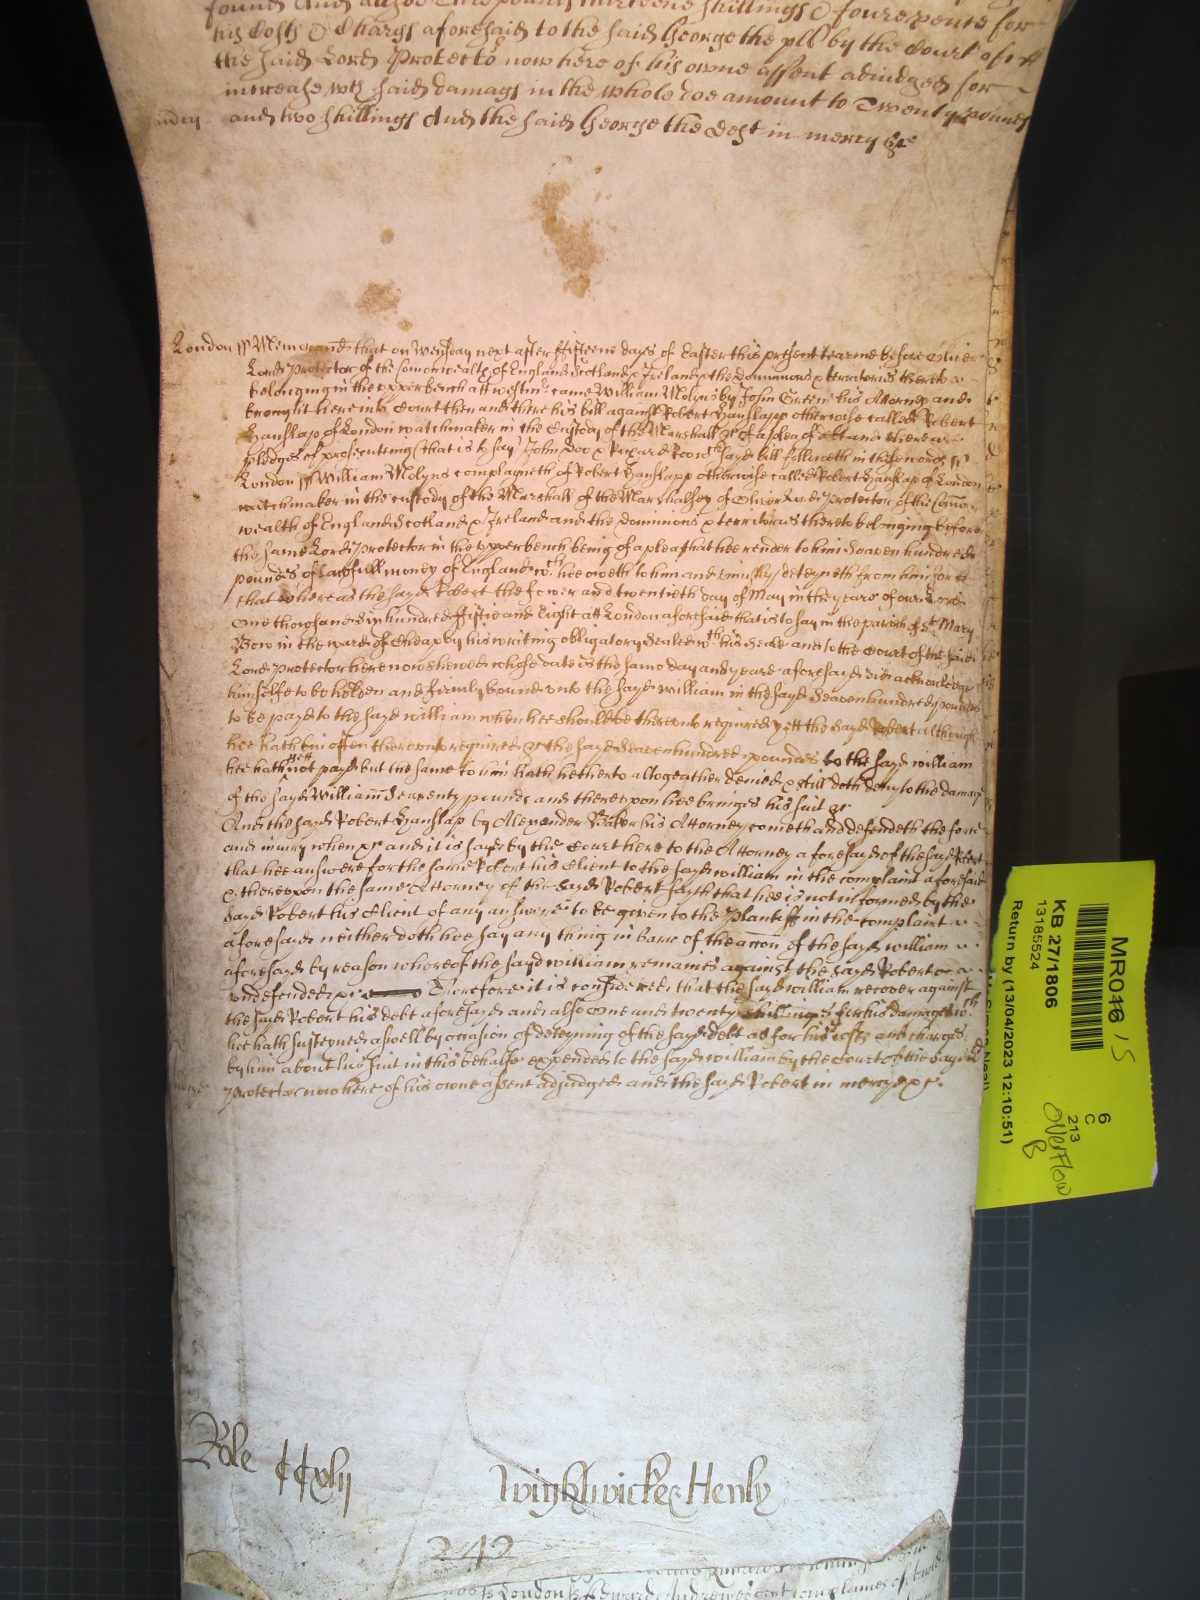 found And allsoe Three pounds thirteene shillings & foure pence for
his Costs & Chargs aforesaid to the said George the plt by the Court of
the said Lord Protecto now here of his owne assent adiudged for
increase wch said damags in the whole doe amount to Twenty pounds
and two shillings And the said George the Deft in mercy &c
London ss Memorand that on Wensday next after fifteene dayes of Easter this present tearme before Oliver
Lord Protector of the Comonwealth of England Scotland & Ireland & the dominions & territories thereto
belonging in the upper bench att Westmr came William Molyns by John Greene his Attorney and
brought here into Court then and there his bill against Robert Hanslapp otherwise called Robert
Hanslap of London watchmaker in the Custody of the Marshall &c of a plea of debt and there are
pledges of prosecuting (that is to say) John Doo & Richard Roo wch sayd bill followeth in these words ss
London ss William Molyns complayneth of Robert Hanslapp otherwise called Robert Hanslap of London
watchmaker in the custody of the Marshall of the Marshalsey of Oliver Lord Protector of the Comon
wealth of England Scotland & Ireland and the dominions & territories thereto belonging before
the same Lord Protector in the upper bench being of a plea that hee render to him Seaven hundred
pounds of lawfull money of England wch hee oweth to him and uniustly deteyneth from him for
that whereas the sayd Robert the fower and twentieth day of May in the yeare of our Lord
One thousand six hundred fiftie and Eight att London aforesaid that is to say in the parish of St Mary
Bow in the ward of Cheap by his writing obligatory Sealed wth his Seale and to the Court of the said
Lord Protector here now shewed whose date is the same day and yeare aforesaid did acknowledge
himselfe to be holden and firmly bound unto the sayd William in the sayd Seaven hundred pounds
to be payd to the sayd William when hee should be thereunto required yett the sayd Robert although
hee hath bin often thereunto required &c the sayd Seaven hundred pounds to the sayd William
hee hath not yett payd but the same to him hath hetherto altogeather denied & still doth deny to the damage
of the sayd William Seaventy pounds and thereupon hee brings his suit &c
And the sayd Robert Hanslap by Alexander Baker his Attorney cometh and defendeth the force
and iniury when &c and it is sayd by the Court here to the Attorney aforesayd of the sayd Robert
that hee answere for the same Robert his Client to the sayd William in the complaint aforesaid
& thereupon the same Attorney of the sayd Robert sayth that hee is not informed by the
sayd Robert his Client of any answere to be given to the Plantiff in the complaint
aforesayd neither doth hee say any thing in barr of the accon of the sayd William
aforesayd by reason whereof the sayd William remaines against the sayd Robert
undefended &c Therefore it is considered that the sayd William recover against
the sayd Robert his debt aforesayd and also one and twenty shillings for his damages wch
hee hath susteyned aswell by occasion of deteyning of the sayd debt as for his costs and charges
by him about his suit in this behalfe expended to the sayd William by the Court of the sayd Lord
Protector now here of his owne assent adjudged and the sayd Robert in mercy &c
Role CCxlij
Wightwicke & Henly
242
MR046
15
KB 27/1806
13185524
Return by (13/04/2023 12:10:51)
6
C
213
Overflow
B